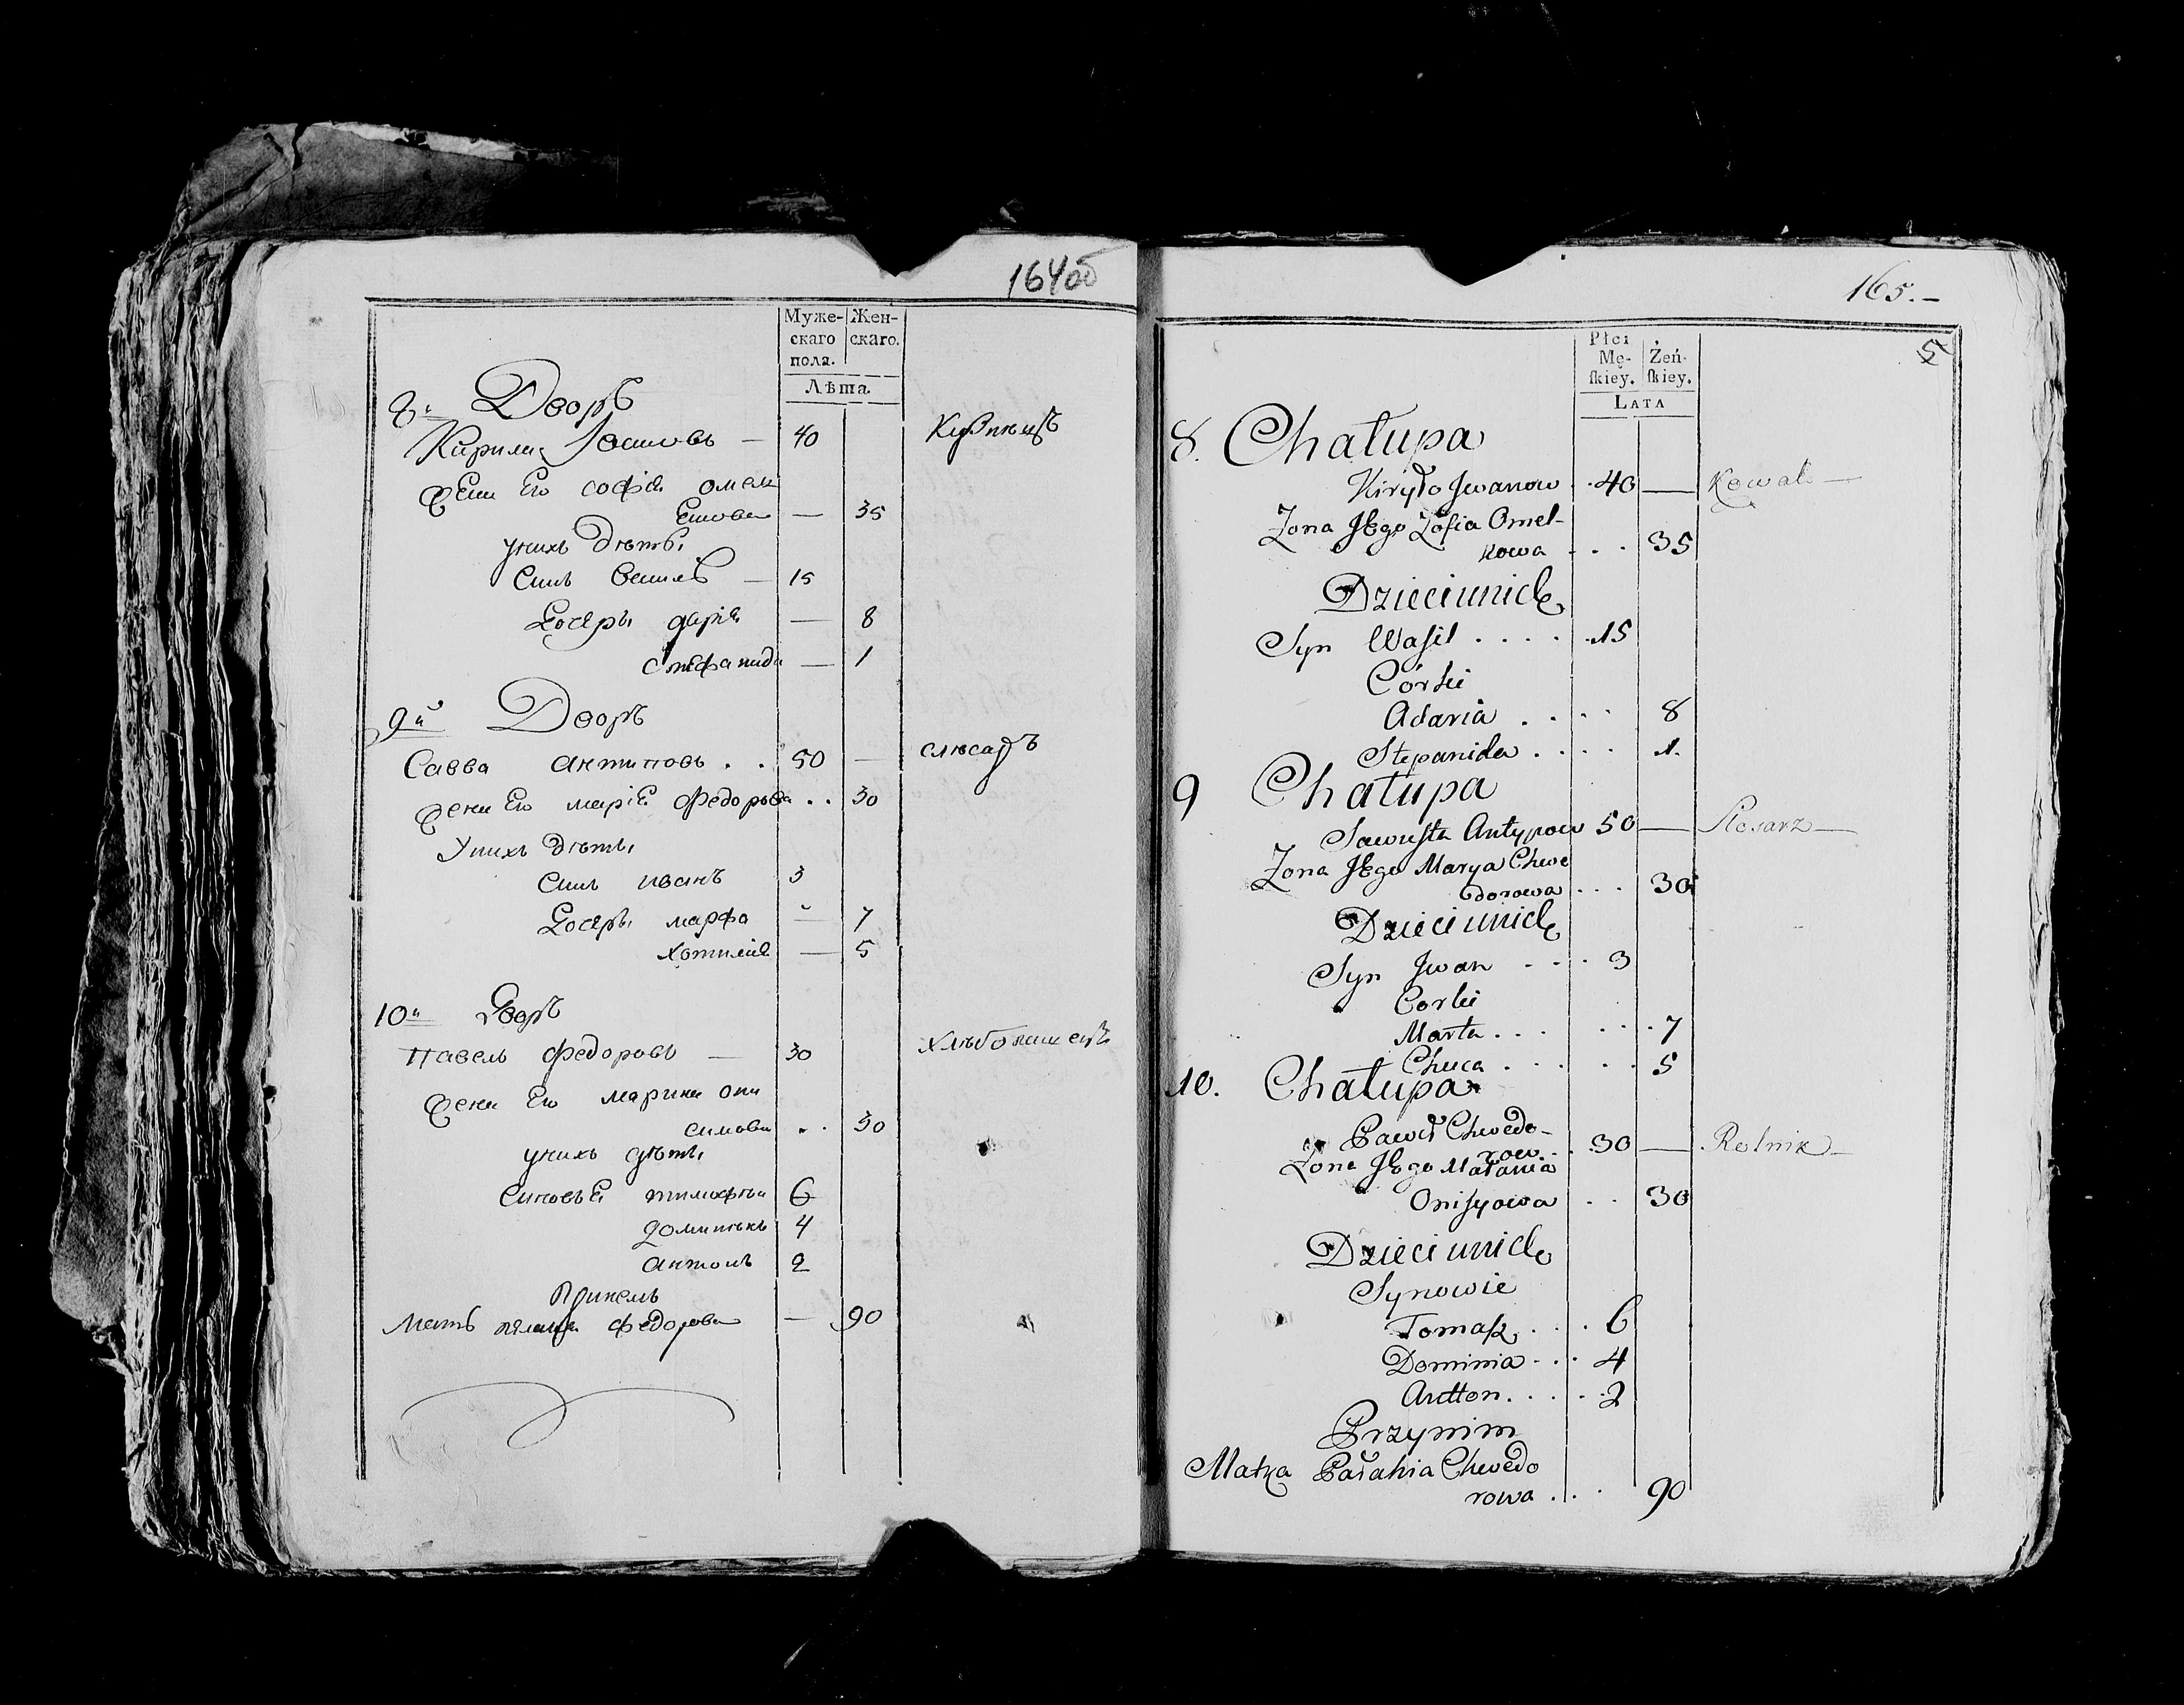 164об
Муже- Жен-
скаго скаго.
пола.
Лѣта.
8й Дворъ
Кирила Івановъ — 40 Кузнецъ
Жена Его софія омель
Янова — 35
У нихъ дѣти
Синъ Василь — 15
Дочери дарія — 8
стефанида — 1
9й Дворъ
Савва антиповъ . . 50 — слюсаръ
Жена Его марія Федорова . . 30
У нихъ дѣти
Синъ иванъ 3
Дочери марфа — 7
— 5
10й Дворъ
Павелъ Федоровъ — 30 Хлѣбопашецъ
Жена Его марина они
симова . . 30
у нихъ дѣти
Синовья тимофѣй 6
доминикъ 4
антонъ 2
При немъ
Мать Федорова — 90
165.—
5
Płci
Mę- Żeń-
skiey. skiey.
LATA
8. Chałupa
Kiryło Jwanow . 40 — Kowal —
Zona JEgo Zofia Omel-
kowa . . . 35
Dzieci unich
Syn Wasil . . . . . 15
Córki
Adaria . . . . 8
Stepanida . . . . 1.
9 Chałupa
Antypow 50 — Slosarz —
Zona JEgo Marya Chwe
dorowa . . . 30
Dzieci unich
Syn Jwan . . . 3
Corki
Marta . . . . . . 7
Chwca . . . . . 5
10. Chałupa
Paweł Chwedo-
row . . 30 — Rolnik —
Zona JEgo Małania
Onisyowa . . 30
Dzieci unich
Synowie
Tomasz . . . 6
Dominia . . . 4
Antton . . . . . 2
Przynim
Matka Pałahia Chwedo
rowa . . . 90